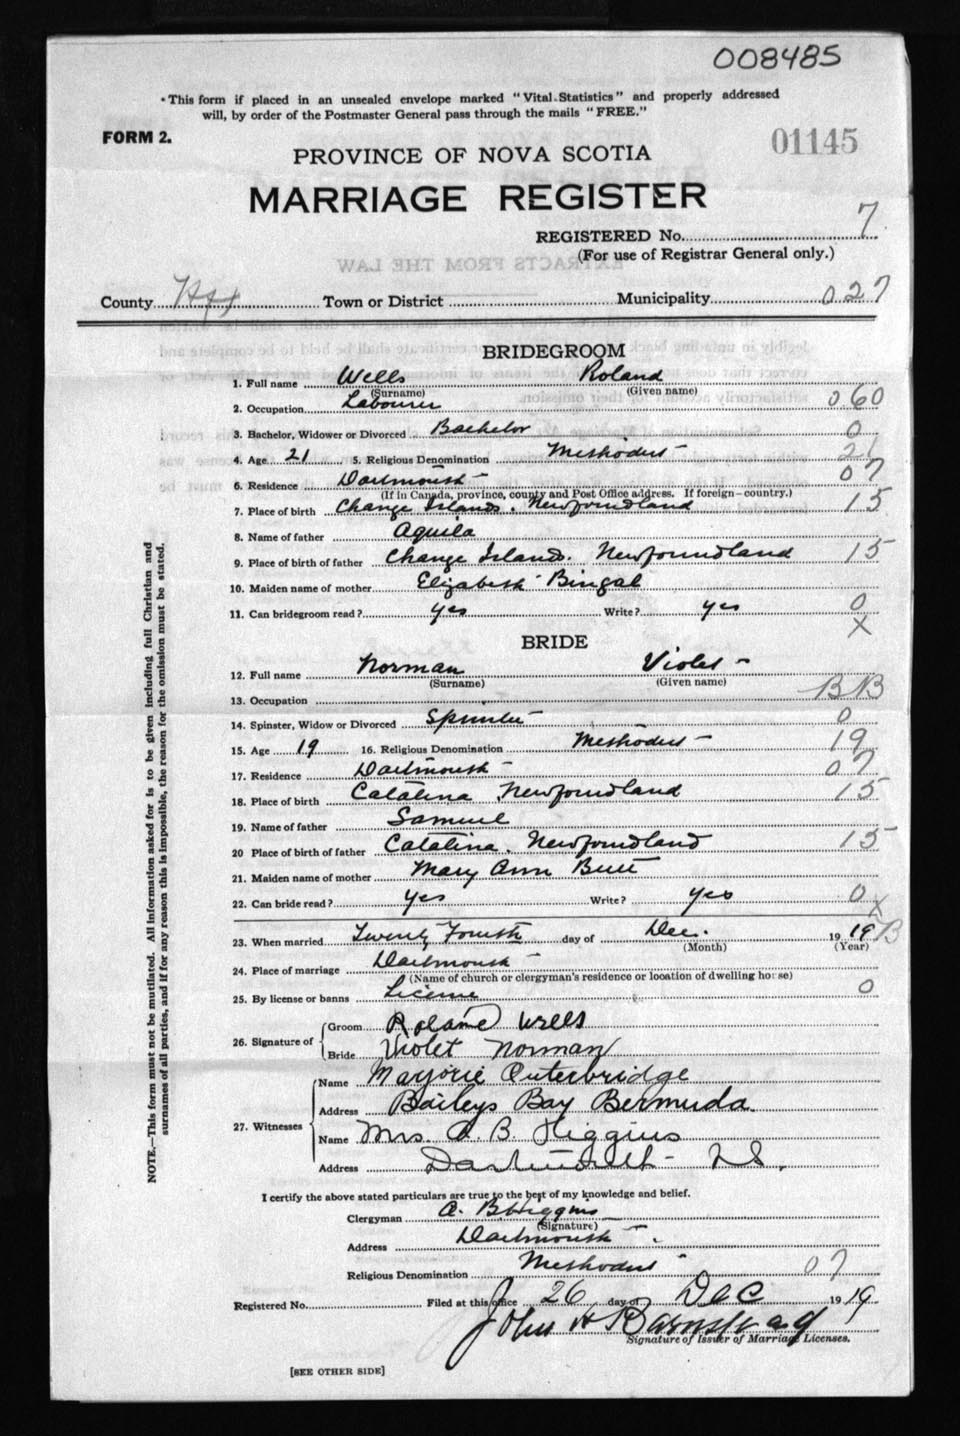 008485
• This form if placed in an unsealed envelope marked "Vital Statistics" and properly addressed
will, by order of the Postmaster General pass through the mails "FREE."
FORM 2.
01145
PROVINCE OF NOVA SCOTIA
MARRIAGE REGISTER
REGISTERED No. 7
(For use of Registrar General only.)
County Hfx Town or District Municipality 027
BRIDEGROOM
1. Full name Wells Roland
(Surname) (Given name)
2. Occupation Labourer 060
3. Bachelor, Widower or Divorced Bachelor 0
4. Age 21 5. Religious Denomination Methodist 21
6. Residence Dartmouth 07
(If in Canada, province, county and Post Office address. If foreign—country.)
7. Place of birth Change Islands. Newfoundland 15
8. Name of father Aquila
9. Place of birth of father Change Islands. Newfoundland 15
10. Maiden name of mother Elizabeth Bingal
11. Can bridegroom read? yes Write? yes 0
X
BRIDE
12. Full name Norman Violet
(Surname) (Given name)
13. Occupation BB
14. Spinster, Widow or Divorced Spinster 0
15. Age 19 16. Religious Denomination Methodist 19
17. Residence Dartmouth 07
18. Place of birth Catalina Newfoundland 15
19. Name of father Samuel
20 Place of birth of father Catalina. Newfoundland 15
21. Maiden name of mother Mary Ann Butt
22. Can bride read? yes Write? yes 0
X
23. When married Twenty Fourth day of Dec. 1919 B
(Month) (Year)
24. Place of marriage Dartmouth
(Name of church or clergyman's residence or location of dwelling house)
25. By license or banns License 0
26. Signature of
Groom Roland Wells
Bride Violet Norman
27. Witnesses
Name Marjorie Outerbridge
Address Baileys Bay Bermuda
Name Mrs. A. B. Higgins
Address Dartmouth N.S.
I certify the above stated particulars are true to the best of my knowledge and belief.
Clergyman A. B. Higgins
(Signature)
Address Dartmouth
Religious Denomination Methodist 07
Registered No. Filed at this office 26 day of Dec 1919
John H Barnstead
Signature of Issuer of Marriage Licenses.
[SEE OTHER SIDE]
NOTE.—This form must not be mutilated. All information asked for is to be given including full Christian and
surnames of all parties, and if for any reason this is impossible, the reason for the omission must be stated.